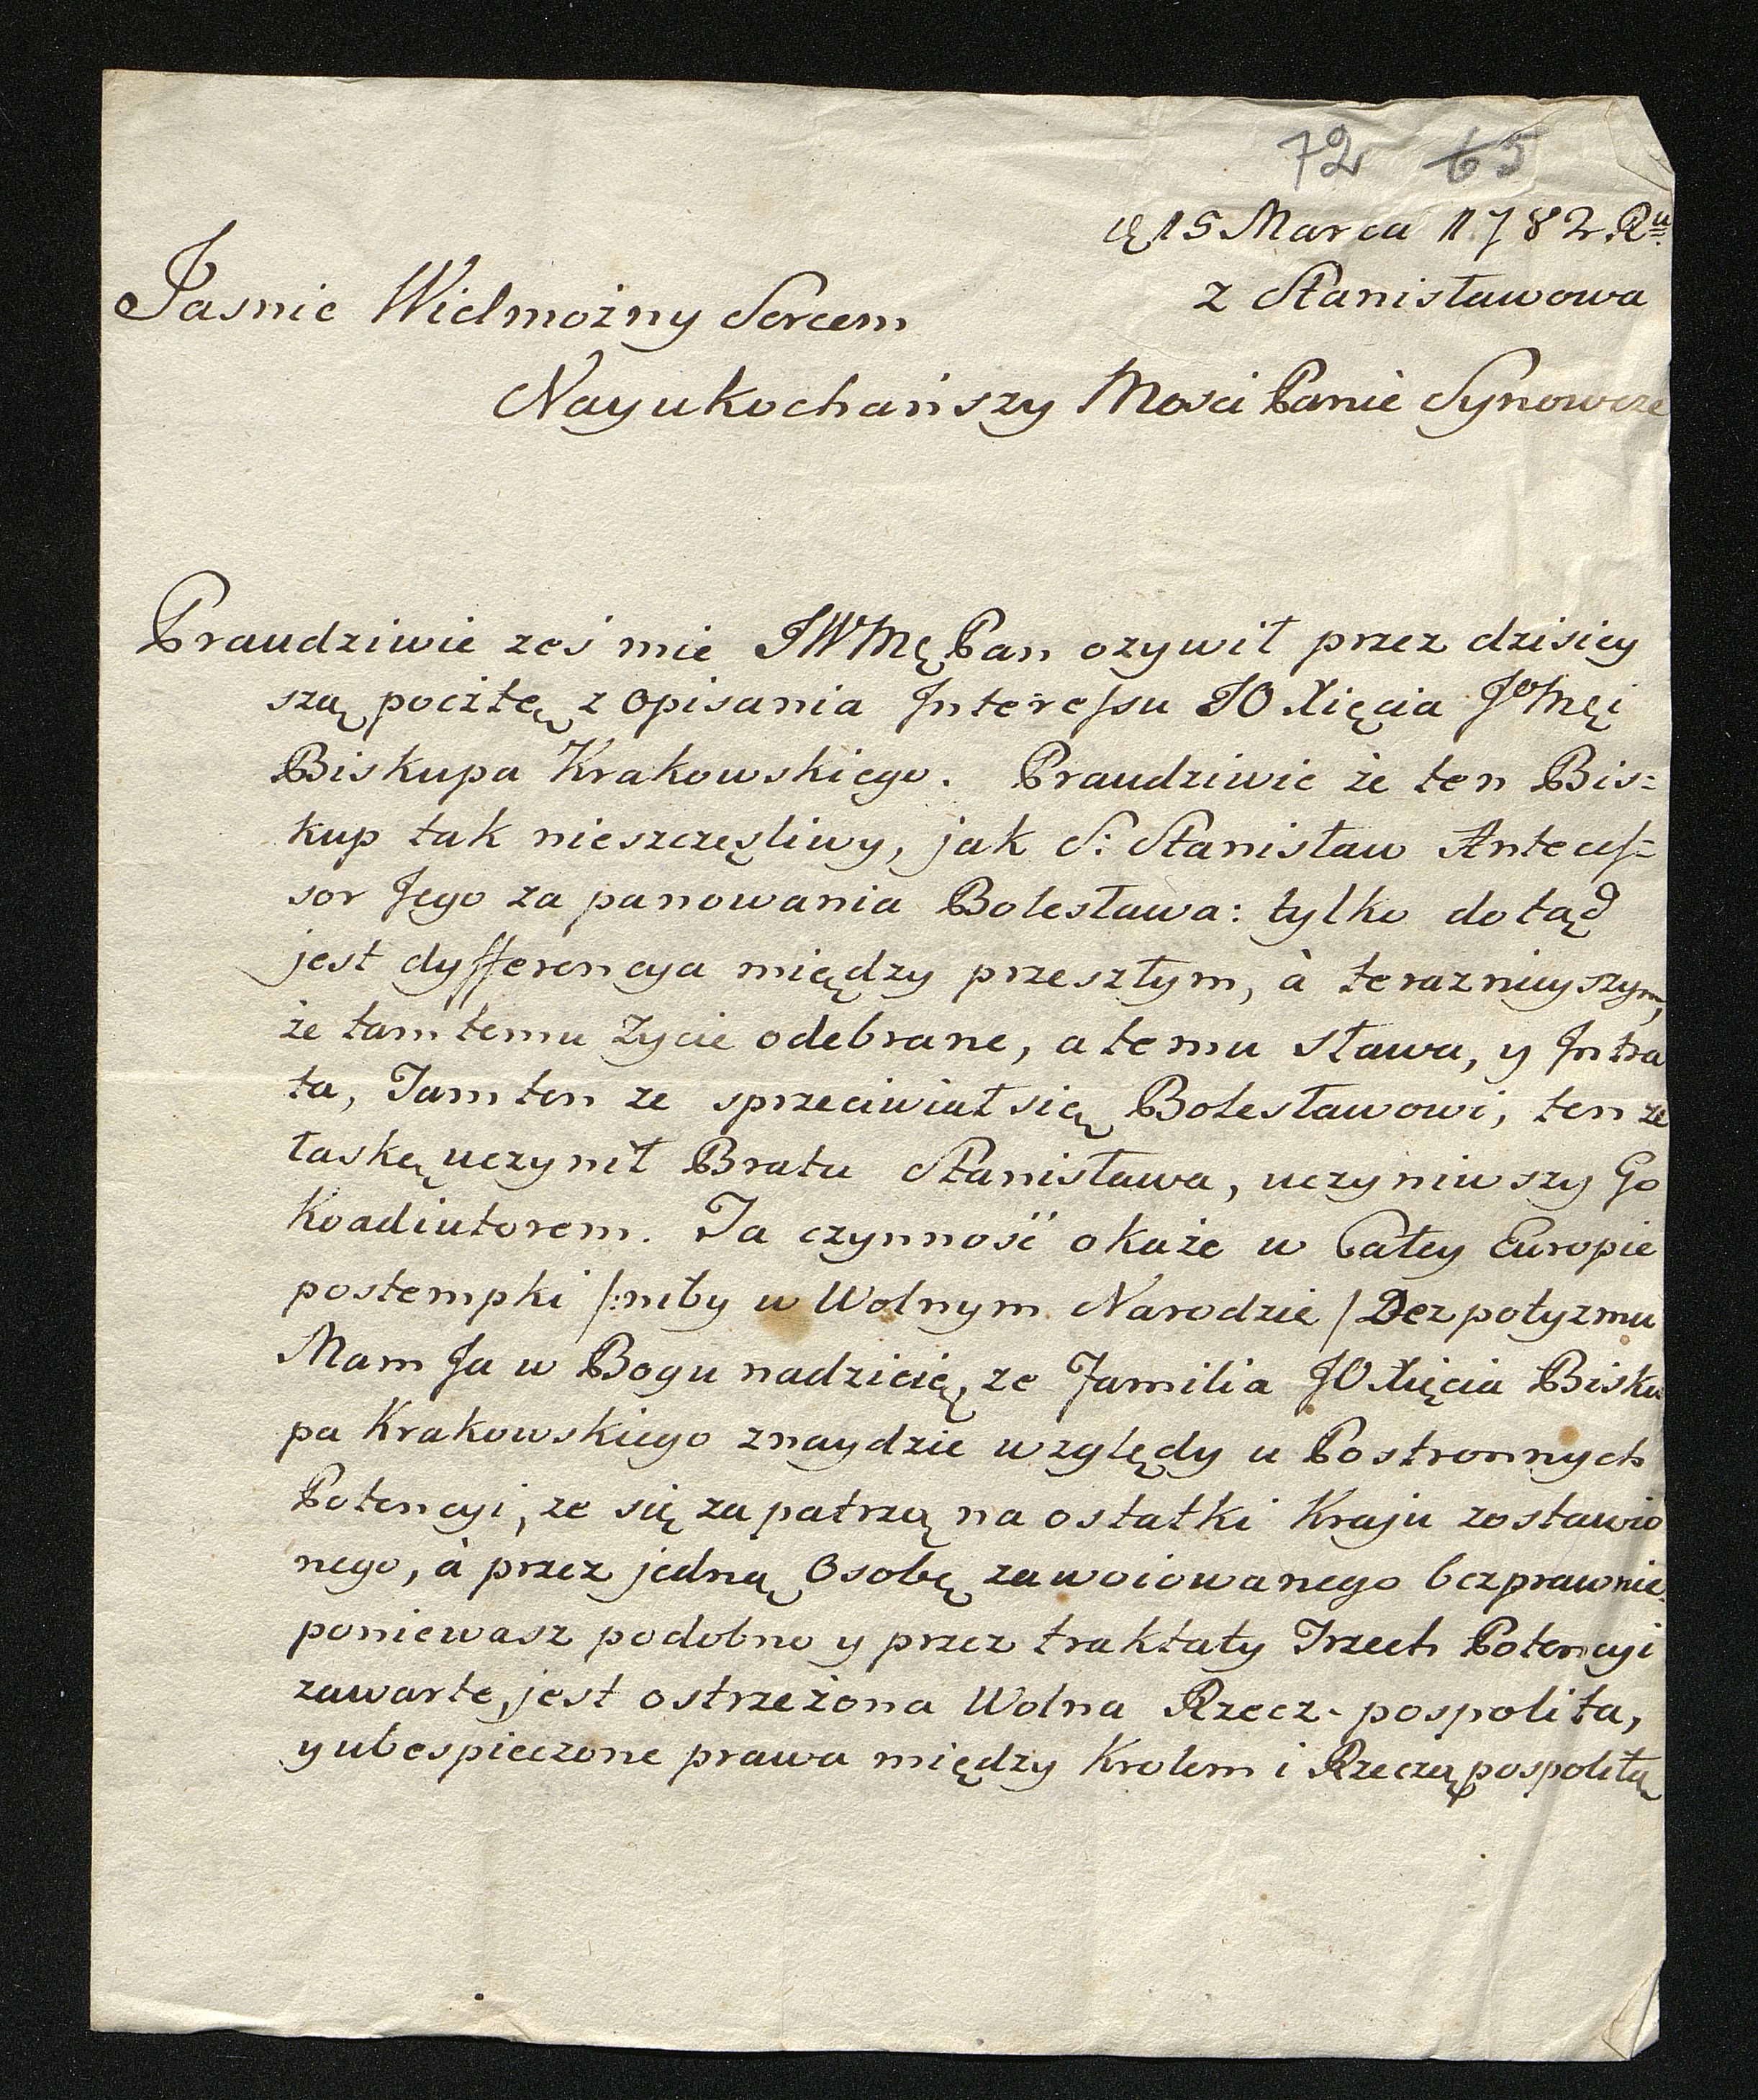 72 65
d 15 Marca 1782 Ru
z Stanisławowa
Jasnie Wielmożny Sercem
Nayukochańszy Mości Panie Synowcze
Prawdziwie ześ mie JWMę Pan ozywił przez dzisiey
szą pocztę z opisania Interessu JO Xięcia JoMęi
Biskupa Krakowskiego. Prawdziwie że ten Bis=
kup tak nieszczęsliwy, jak S: Stanisław Antecess=
sor Jego za panowania Bolesława: tylko dotąd
jest dyfferencya między przeszłym, à teraznieyszym,
że tamtemu życie odebrane, a temu sława, y Intra
ta, Tamten ze sprzeciwiał się Bolesławowi, ten ze
łaskę uczynił Bratu Stanisława, uczyniwszy Go
Koadiutorem. Ta czynność okaże w Całey Europie
postempki /:niby w Wolnym Narodzie / Dezpotyzmu
Mam Ja w Bogu nadzieię, ze Familia JO Xięcia Bisku
pa Krakowskiego znaydzie względy u Postronnych
Potencyi, ze się zapatrzą na ostatki Kraju zostawio
nego, à przez jedną Osobę zawoiowanego bezprawnie.
poniewasz podobno y przez traktaty Trzech Potencyi
zawarte, jest ostrzeżona Wolna Rzecz-pospolita,
y ubespieczone prawa między Krolem i Rzecząpospolitą